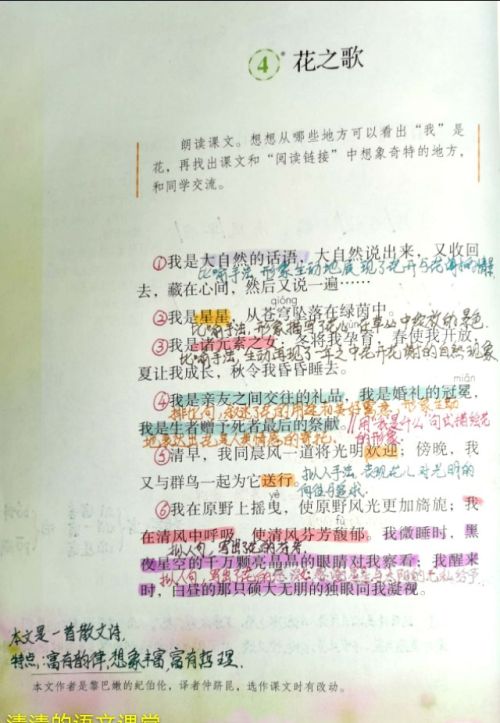 4* 花之歌
朗读课文。想想从哪些地方可以看出“我”是
花，再找出课文和“阅读链接”中想象奇特的地方，
和同学交流。
①我是大自然的话语，大自然说出来，又收回
比喻手法，形象生动地展现了花开与花谢的情景
去，藏在心间，然后又说一遍……
qióng
②我是星星，从苍穹坠落在绿茵中。
比喻手法，形象描写了花儿在草丛中绽放的景色
yùn
③我是诸元素之女：冬将我孕育，春使我开放，
比喻手法，生动再现了一年之中花开花谢的自然现象
夏让我成长，秋令我昏昏睡去。
miǎn
④我是亲友之间交往的礼品，我是婚礼的冠冕，
排比句，叙述了花的用途和美好寓意，形象生动
我是生者赠予死者最后的祭献。用“我是什么”句式描绘花
地表达出花是人类情感的寄托。的形象
⑤清早，我同晨风一道将光明欢迎；傍晚，我
拟人手法，表现花儿对光明的
又与群鸟一起为它送行。
向往与追求。
yè
⑥我在原野上摇曳，使原野风光更加旖旎；我
fù
在清风中呼吸，使清风芬芳馥郁。我微睡时，黑
拟人句，写出花的芬芳
夜星空的千万颗亮晶晶的眼睛对我察看；我醒来
拟人句，写出了花的
时，白昼的那只硕大无朋的独眼向我凝视。
本文是一首散文诗，
特点：富有韵律，想象丰富，富有哲理。
本文作者是黎巴嫩的纪伯伦，译者仲跻昆，选作课文时有改动。
清清的语文课堂